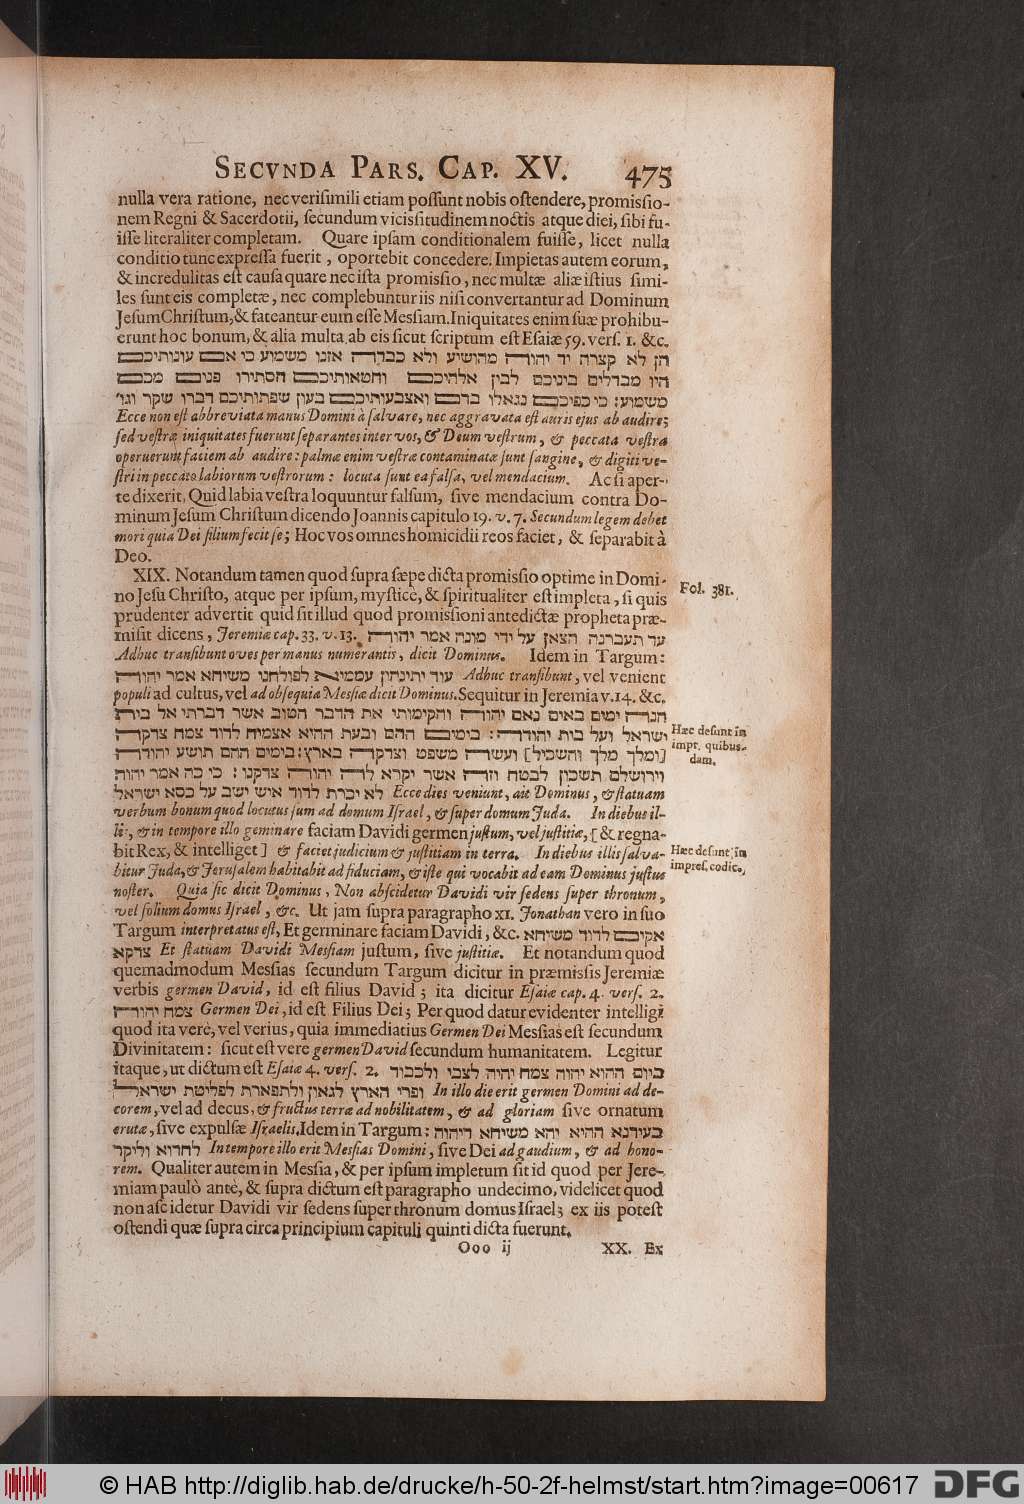 SECVNDA PARS. CAP. XV. 475
nulla vera ratione, nec verisimili etiam possunt nobis ostendere, promissio-
nem Regni & Sacerdotii, secundum vicissitudinem noctis atque diei, sibi fu-
isse literaliter completam. Quare ipsam conditionalem fuisse, licet nulla
conditio tunc expressa fuerit, oportebit concedere. Impietas autem eorum,
& incredulitas est causa quare nec ista promissio, nec multæ aliæ istius simi-
les sunt eis completæ, nec complebuntur iis nisi convertantur ad Dominum
Jesum Christum, & fateantur eum esse Messiam. Iniquitates enim suæ prohibu-
erunt hoc bonum, & alia multa ab eis sicut scriptum est Esaiæ 59. vers. 1. &c.
הן לא קצרה יד יהוה מהושיע ולא כבדה אזנו משמוע כי אם עונותיכם
היו מבדלים ביניכם לבין אלהיכם וחטאותיכם הסתירו פנים מכם
משמוע: כי כפיכם נגאלו בדם ואצבעותיכם בעון שפתותיכם דברו שקר וגו׳
Ecce non est abbreviata manus Domini à salvare, nec aggravata est auris ejus ab audire;
sed vestræ iniquitates fuerunt separantes inter vos, & Deum vestrum, & peccata vestra
operuerunt faciem ab audire: palmæ enim vestræ contaminatæ sunt sangine, & digiti ve-
stri in peccato labiorum vestrorum: locuta sunt ea falsa, vel mendacium. Ac si aper-
te dixerit, Quid labia vestra loquuntur falsum, sive mendacium contra Do-
minum Jesum Christum dicendo Joannis capitulo 19. v. 7. Secundum legem debet
mori quia Dei filium fecit se; Hoc vos omnes homicidii reos faciet, & separabit à
Deo.
XIX. Notandum tamen quod supra sæpe dicta promissio optime in Domi-
no Jesu Christo, atque per ipsum, mysticè, & spiritualiter est impleta, si quis
prudenter advertit quid sit illud quod promissioni antedictæ propheta præ-
misit dicens, Jeremiæ cap. 33. v. 13. עד תעברנה הצאן על ידי מונה אמר יהוה
Adhuc transibunt oves per manus numerantis, dicit Dominus. Idem in Targum:
עוד יתינהון עממיא לפולחנו משיחא אמר יהוה Adhuc transibunt, vel venient
populi ad cultus, vel ad obsequia Messiæ dicit Dominus. Sequitur in Jeremia v. 14. &c.
הנה ימים באים נאם יהוה והקימותי את הדבר הטוב אשר דברתי אל בית
ישראל ועל בית יהודה: בימים ההם ובעת ההיא אצמיח לדוד צמח צדקה
[ומלך מלך והשכיל] ועשה משפט וצדקה בארץ: בימים ההם תושע יהודה
וירושלם תשכון לבטח וזה אשר יקרא לה יהוה צדקנו: כי כה אמר יהוה
לא יכרת לדוד איש ישב על כסא ישראל Ecce dies veniunt, ait Dominus, & statuam
verbum bonum quod locutus sum ad domum Israel, & super domum Juda. In diebus il-
lis, & in tempore illo geminare faciam Davidi germen justum, vel justitiæ, [& regna-
bit Rex, & intelliget] & faciet judicium & justitiam in terra. In diebus illis salva-
bitur Juda, & Jerusalem habitabit ad fiduciam, & iste qui vocabit ad eam Dominus justus
noster. Quia sic dicit Dominus, Non abscidetur Davidi vir sedens super thronum,
vel solium domus Israel, &c. Ut jam supra paragrapho XI. Jonathan vero in suo
Targum interpretatus est, Et germinare faciam Davidi, &c. אקים לדוד משיחא
צדקא Et statuam Davidi Messiam justum, sive justitiæ. Et notandum quod
quemadmodum Messias secundum Targum dicitur in præmissis Jeremiæ
verbis germen David, id est filius David; ita dicitur Esaiæ cap. 4. vers. 2.
צמח יהוה Germen Dei, id est Filius Dei; Per quod datur evidenter intelligi
quod ita verè, vel verius, quia immediatius Germen Dei Messias est secundum
Divinitatem: sicut est vere germen David secundum humanitatem. Legitur
itaque, ut dictum est Esaiæ 4. vers. 2. ביום ההוא יהוה צמח יהיה לצבי ולכבוד
ופרי הארץ לגאון ולתפארת לפליטת ישראל In illo die erit germen Domini ad de-
corem, vel ad decus, & fructus terræ ad nobilitatem, & ad gloriam sive ornatum
erutæ, sive expulsæ Israelis. Idem in Targum: בעידנא ההיא יהא משיחא דיהוה
לחדוא וליקר In tempore illo erit Messias Domini, sive Dei ad gaudium, & ad hono-
rem. Qualiter autem in Messia, & per ipsum impletum sit id quod per Jere-
miam paulò antè, & supra dictum est paragrapho undecimo, videlicet quod
non abscidetur Davidi vir sedens super thronum domus Israel; ex iis potest
ostendi quæ supra circa principium capituli quinti dicta fuerunt.
Ooo ij XX. Ex
Fol. 381.
Hæc desunt in
impr. quibus-
dam.
Hæc desunt in
impres. codic.
© HAB http://diglib.hab.de/drucke/h-50-2f-helmst/start.htm?image=00617 DFG